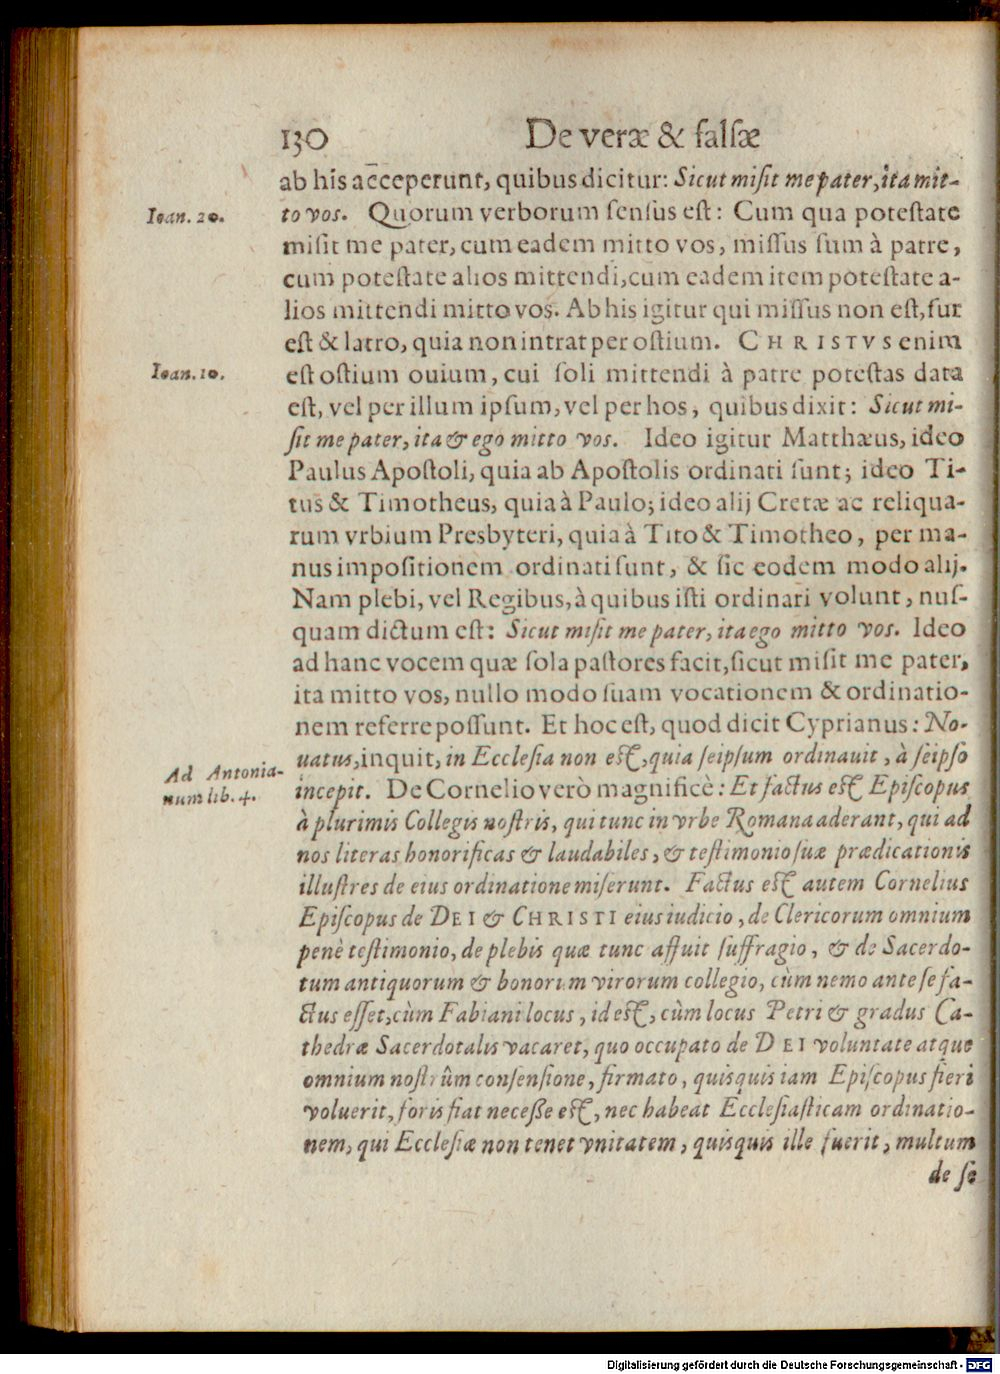 130 De veræ & falsæ
ab his acceperunt, quibus dicitur: Sicut misit me pater, ita mit-
Ioan. 20.
to vos. Quorum verborum sensus est: Cum qua potestate
misit me pater, cum eadem mitto vos, missus sum à patre,
cum potestate alios mittendi, cum eadem item potestate a-
lios mittendi mitto vos. Ab his igitur qui missus non est, fur
est & latro, quia non intrat per ostium. CHRISTVS enim
Ioan. 10.
est ostium ouium, cui soli mittendi à patre potestas data
est, vel per illum ipsum, vel per hos, quibus dixit: Sicut mi-
sit me pater, ita & ego mitto vos. Ideo igitur Matthæus, ideo
Paulus Apostoli, quia ab Apostolis ordinati sunt; ideo Ti-
tus & Timotheus, quia à Paulo; ideo alij Cretæ ac reliqua-
rum vrbium Presbyteri, quia à Tito & Timotheo, per ma-
nus impositionem ordinati sunt, & sic eodem modo alij.
Nam plebi, vel Regibus, à quibus isti ordinari volunt, nus-
quam dictum est: Sicut misit me pater, ita ego mitto vos. Ideo
ad hanc vocem quæ sola pastores facit, sicut misit me pater,
ita mitto vos, nullo modo suam vocationem & ordinatio-
nem referre possunt. Et hoc est, quod dicit Cyprianus: No-
uatus, inquit, in Ecclesia non est, quia seipsum ordinauit, à seipso
Ad Antonia-
num lib. 4.
incepit. De Cornelio verò magnificè: Et factus est Episcopus
à plurimis Collegis nostris, qui tunc in vrbe Romana aderant, qui ad
nos literas honorificas & laudabiles, & testimonio suæ prædicationis
illustres de eius ordinatione miserunt. Factus est autem Cornelius
Episcopus de DEI & CHRISTI eius iudicio, de Clericorum omnium
penè testimonio, de plebis quæ tunc affuit suffragio, & de Sacerdo-
tum antiquorum & bonorum virorum collegio, cùm nemo ante se fa-
ctus esset, cùm Fabiani locus, id est, cùm locus Petri & gradus Ca-
thedræ Sacerdotalis vacaret, quo occupato de DEI voluntate atque
omnium nostrûm consensione, firmato, quisquis iam Episcopus fieri
voluerit, foris fiat necesse est, nec habeat Ecclesiasticam ordinatio-
nem, qui Ecclesiæ non tenet vnitatem, quisquis ille fuerit, multum
de se
Digitalisierung gefördert durch die Deutsche Forschungsgemeinschaft - DFG